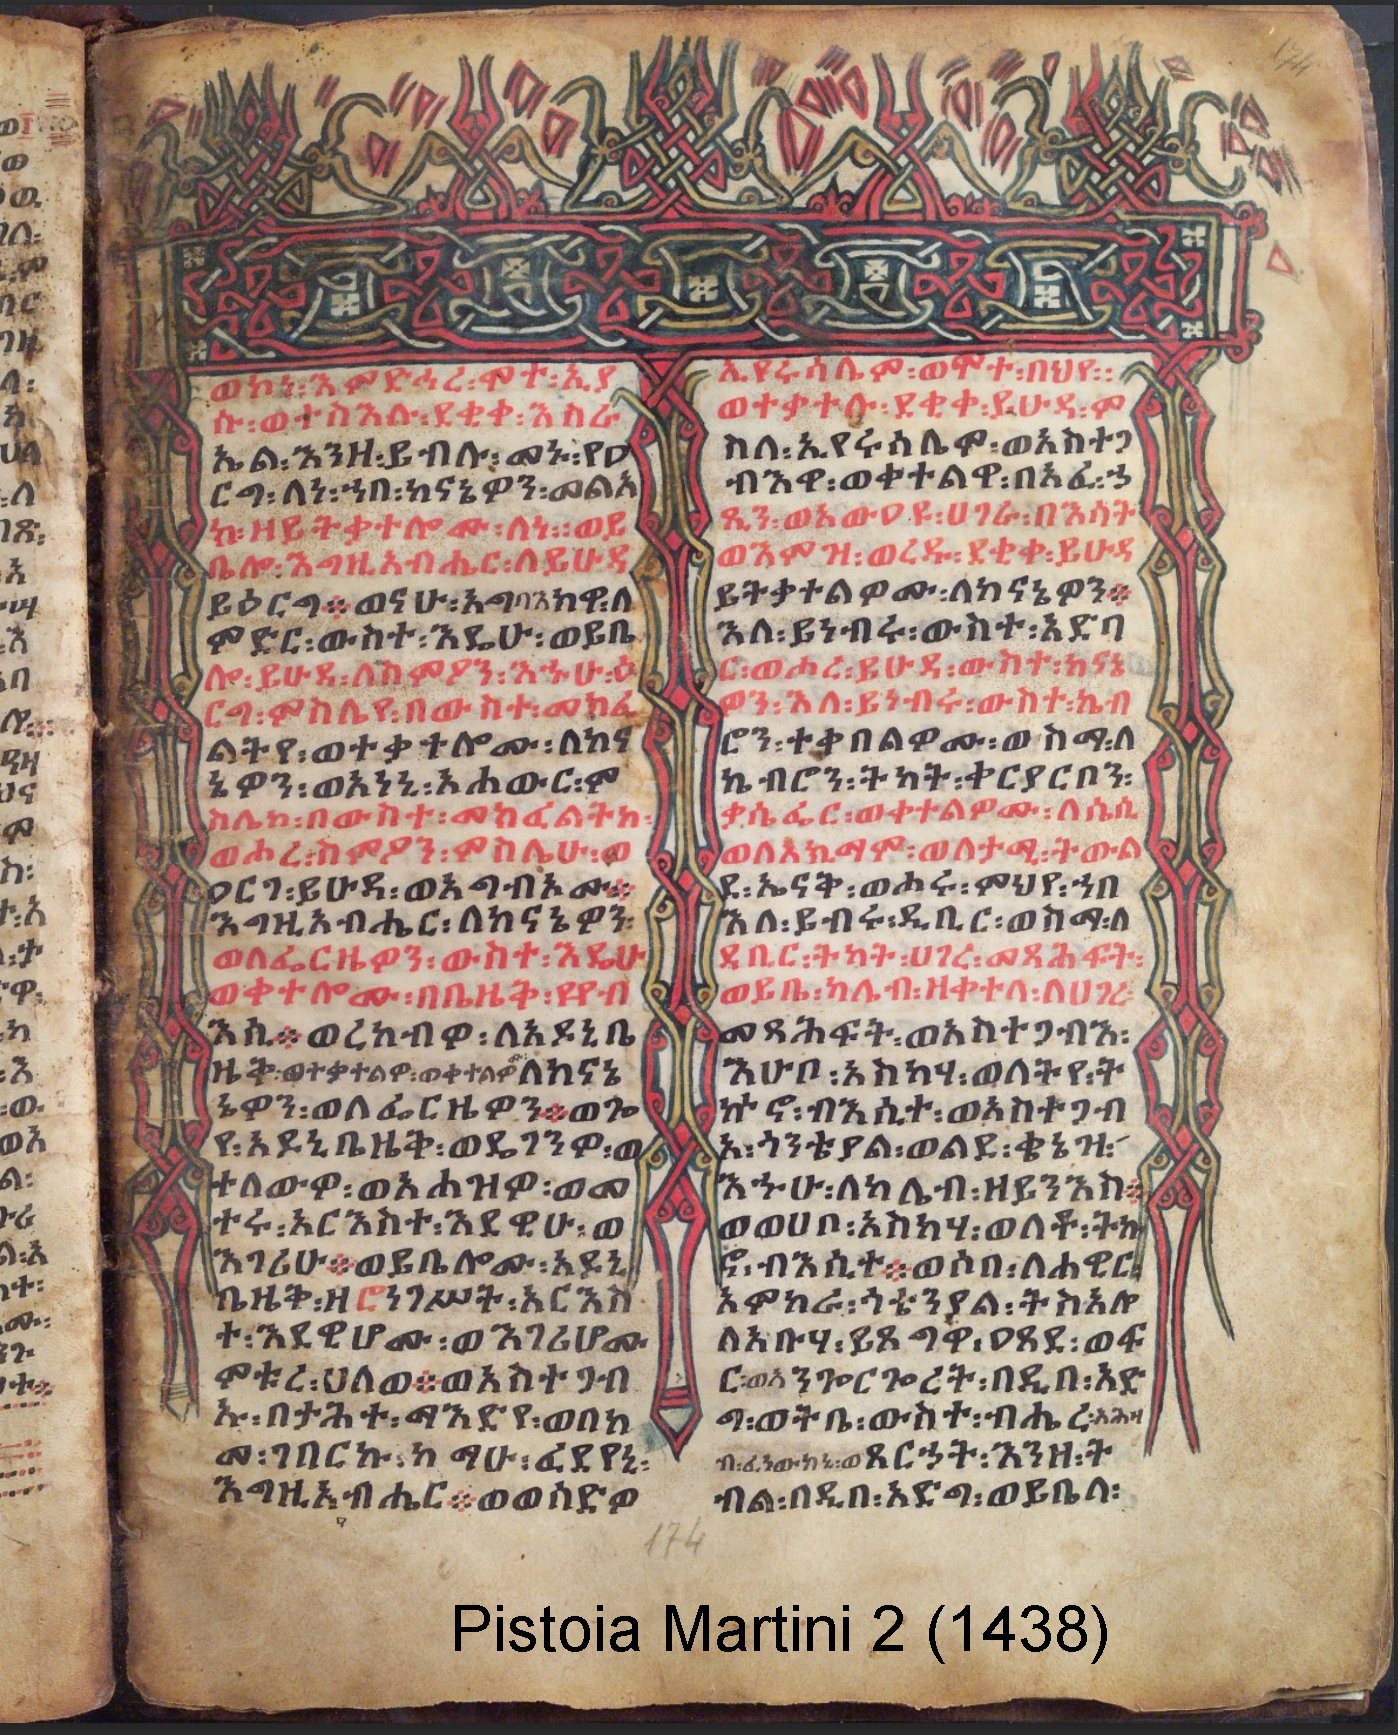 ወኮነ፡እምድኅረ፡ሞተ፡ኢያ
ሱ፡ወተስእሉ፡ደቂቀ፡እስራ
ኤል፡እንዘ፡ይብሉ፡መኑ፡የዐ
ርግ፡ለነ፡ኀበ፡ከናኔዎን፡መልአ
ከ፡ዘይትቃተሎሙ፡ለነ፡፡ወይ
ቤሎ፡እግዚአብሔር፡ለይሁዳ
ይዕርግ፨ወናሁ፡አግባእክዋ፡ለ
ምድር፡ውስተ፡እዴሁ፡ወይቤ
ሎ፡ይሁዳ፡ለስምዖን፡እኁሁ፡ዕ
ርግ፡ምስሌየ፡በውስተ፡መክፈ
ልትየ፡ወተቃተሎሙ፡ለከና
ኔዎን፡ወአነኒ፡አሐውር፡ም
ስሌከ፡በውስተ፡መክፈልትከ፡
ወሖረ፡ስምዖን፡ምስሌሁ፡ወ
ዐርገ፡ይሁዳ፡ወአግብኦሙ፨
እግዚአብሔር፡ለከናኔዎን፡
ወለፌርዜዎን፡ውስተ፡እዴሁ
ወቀተሎሙ፡በቤዜቅ፡፼ብ
እሲ፨ወረከብዎ፡ለአዶኒቤ
ዜቅ፡ወተቃተልዎ፡ወቀተልዎ፡ለከናኔ
ኔዎን፡ወለፌርዜዎን፨ወጐ
የ፡አዶኒቤዜቅ፡ወዴገንዎ፡ወ
ተለውዎ፡ወአሐዝዎ፡ወመ
ተሩ፡አርእስተ፡እደዊሁ፡ወ
እገሪሁ፨ወይቤሎሙ፡አዶኒ
ቤዜቅ፡ዘሮንገሥት፡አርእስ
ተ፡እደዊሆሙ፡ወእገሪሆሙ
ምቱረ፡ሀለወ፨ወአስተጋብ
ኡ፡በታሕተ፡ማእድየ፡ወበከ
መ፡ገበርኩ፡ከማሁ፡ፈደየኒ፡
እግዚአብሔር፨ወወሰድዎ
ኢየሩሳሌም፡ወሞተ፡በህየ፡፡
ወተቃተሉ፡ደቂቀ፡ይሁዳ፡ም
ስለ፡ኢየሩሳሌም፡ወአስተጋ
ብእዋ፡ወቀተልዋ፡በአፈ፡ኀ
ፂን፡ወአውዐዩ፡ሀገራ፡በእሳት
ወእምዝ፡ወረዱ፡ደቂቀ፡ይሁዳ
ይትቃተልዎሙ፡ለከናኔዎን፨
እለ፡ይነብሩ፡ውስተ፡አድባ
ር፡ወሖረ፡ይሁዳ፡ውስተ፡ከናኔ
ዎን፡እለ፡ይነብሩ፡ውስተ፡ኬብ
ሮን፡ተቀበልዎሙ፡ወስማ፡ለ
ኬብሮን፡ትካት፡ቀርያርቦን፡
ቃሴፌር፡ወቀተልዎሙ፡ለሴሲ
ወለአኪማም፡ወለታሚ፡ትውል
ደ፡ኤናቅ፡ወሖሩ፡ምህየ፡ኀበ
እለ፡ይብሩ፡ዲቢር፡ወስማ፡ለ
ዳቤር፡ትካት፡ሀገረ፡መጻሕፍት፡
ወይቤ፡ካሌብ፡ዘቀተላ፡ለሀገረ፡
መጻሕፍት፡ወአስተጋብእ፡
እሁቦ፡አስካሃ፡ወለትየ፡ት
ኩኖ፡ብእሲተ፡ወአስተጋብ
አ፡ጎንቴያል፡ወልደ፡ቄኔዝ፡
እኁሁ፡ለካሌብ፡ዘይንእስ፨
ወወሀቦ፡አስካሃ፡ወለቶ፡ትኩ
ኖ፡ብእሲተ፨ወሶበ፡ለሐዊር፡
አምከራ፡ጎቴንያል፡ትስአሎ
ለአቡሃ፡ይጸግዋ፡ዐጸደ፡ወፍ
ር፡ወአንጐርጐረት፡በዲበ፡አድ
ግ፡ወትቤ፡ውስተ፡ብሔረ፡አሕዛ
ብ፡ፈነውከኒ፡ወጸርኀት፡እንዘ፡ት
ብል፡በዲበ፡አድግ፡ወይቤላ፡
174
Pistoia Martini 2 (1438)